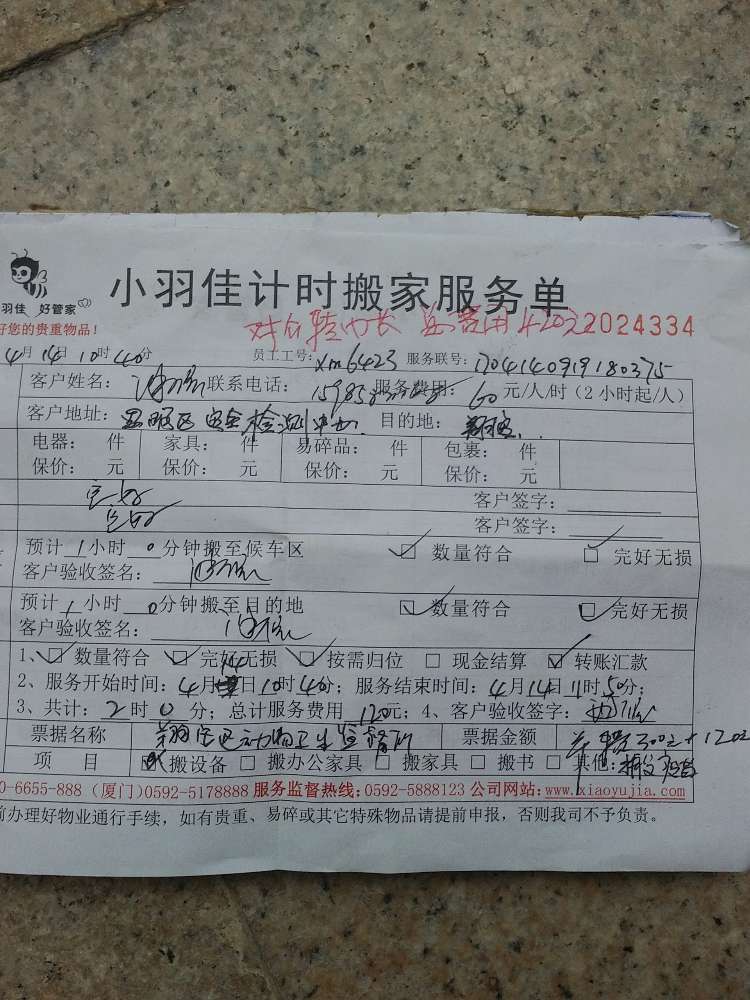 小羽佳计时搬家服务单
羽佳 好管家
好您的贵重物品！
总费用420元 2024334
4月14日10时40分 员工工号：xm6423 服务联号：1704140919180375
客户姓名： 联系电话： 服务费用：60元/人/时（2小时起/人）
客户地址： 目的地：
电器： 件 家具： 件 易碎品： 件 包裹： 件
保价： 元 保价： 元 保价： 元 保价： 元
完好 客户签字：
完好 客户签字：
预计1小时0分钟搬至候车区 数量符合 完好无损
客户验收签名：
预计1小时0分钟搬至目的地 数量符合 完好无损
客户验收签名：
1、数量符合 完好无损 按需归位 现金结算 转账汇款
2、服务开始时间：4月14日10时40分；服务结束时间：4月14日11时50分；
3、共计：2时0分；总计服务费用120元；4、客户验收签字：
票据名称 翔安区动物卫生监督所 票据金额 300元+120元
项 目 搬设备 搬办公家具 搬家具 搬书 其他：
0-6655-888（厦门）0592-5178888 服务监督热线：0592-5888123 公司网站：www.xiaoyujia.com
前办理好物业通行手续，如有贵重、易碎或其它特殊物品请提前申报，否则我司不予负责。